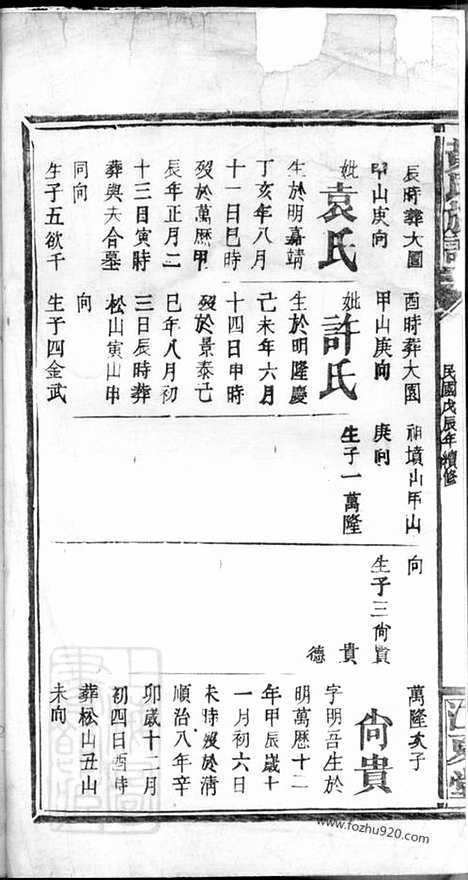 辰時葬大園
甲山庚向
妣袁氏
生於明嘉靖
丁亥年八月
十一日巳時
歿於萬曆甲
辰年正月二
十三日寅時
葬與夫合墓
同向
生子五欲千
酉時葬大園
甲山庚向
妣許氏
生於明隆慶
己未年六月
十四日申時
歿於景泰己
巳年八月初
三日辰時葬
松山寅山申
向
生子四金武
祖墳山甲山
庚向
生子一萬隆
向
生子三尙賢
貴
德
萬隆次子
尙貴
字明吾生於
明萬曆十二
年甲辰歲十
一月初六日
未時歿於淸
順治八年辛
卯歲十二月
初四日酉時
葬松山丑山
未向
民國戊辰年續修
江夏堂
www.fozhu920.com